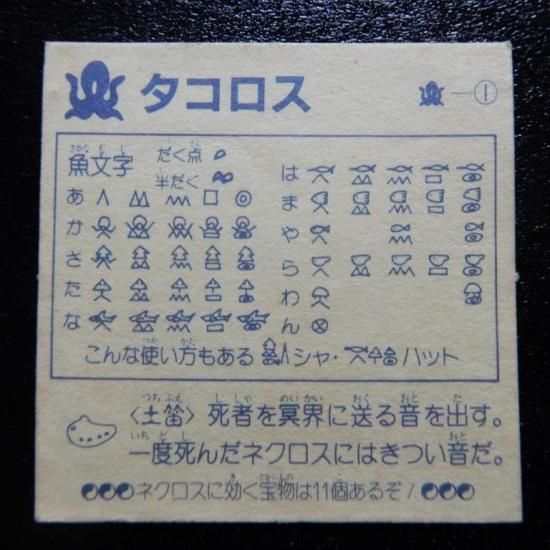 タコロス ①
魚文字 だく点
半だく
あ
か
さ
た
な
は
ま
や
ら
わ
ん
こんな使い方もある シャ・ハット
〈土笛〉死者を冥界に送る音を出す。
一度死んだネクロスにはきつい音だ。
ネクロスに効く宝物は11個あるぞ!